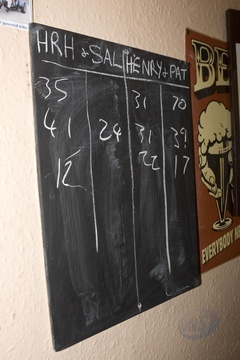 HRH & SAL HENRY & PAT
35 31 70
41 24 31 39
12 22 17
BE
EVERYBODY NE